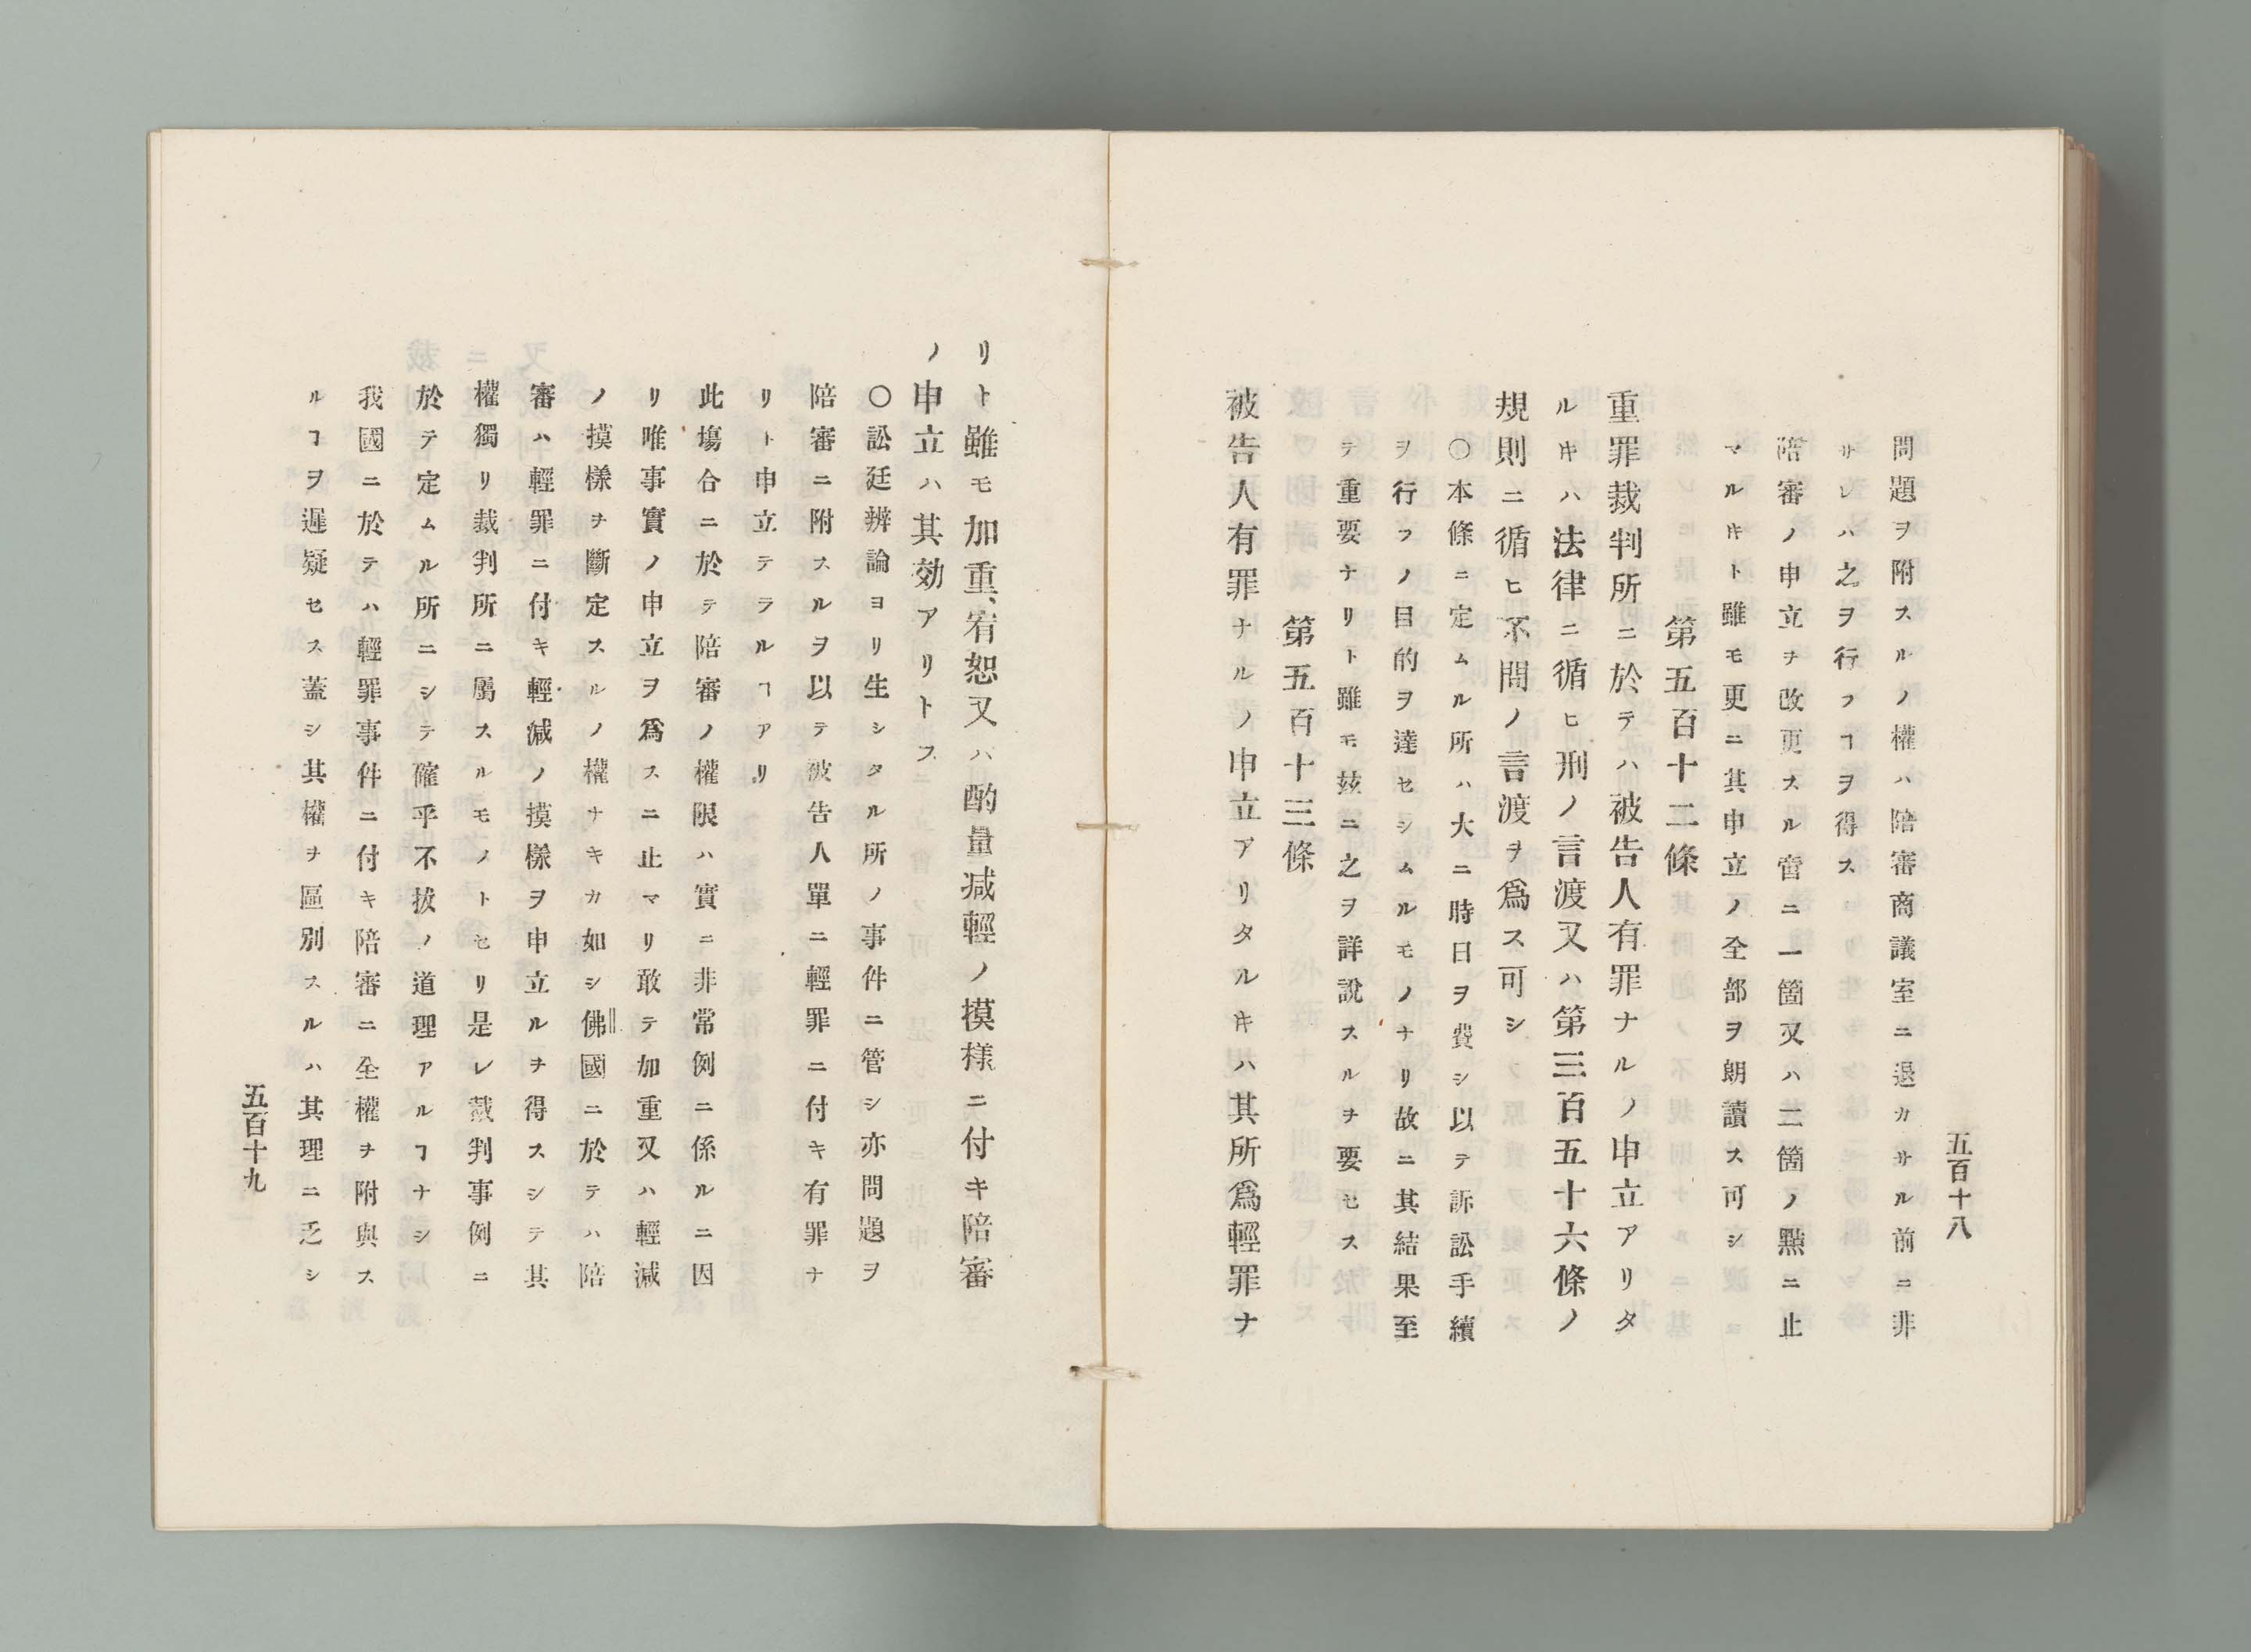 五百十八
問題ヲ附スルノ權ハ陪審商議室ニ退カサル前ニ非
サレハ之ヲ行フヿヲ得ス
陪審ノ申立ヲ改更スル啻ニ一箇又ハ二箇ノ點ニ止
マルキト雖モ更ニ其申立ノ全部ヲ朗讀ス可シ
第五百十二條
重罪裁判所ニ於テハ被告人有罪ナルノ申立アリタ
ルキハ法律ニ循ヒ刑ノ言渡又ハ第三百五十六條ノ
規則ニ循ヒ不問ノ言渡ヲ爲ス可シ
〇本條ニ定ムル所ハ大ニ時日ヲ費シ以テ訴訟手續
ヲ行フノ目的ヲ達セシムルモノナリ故ニ其結果至
テ重要ナリト雖モ玆ニ之ヲ詳說スルヲ要セス
第五百十三條
被告人有罪ナルノ申立アリタルキハ其所爲輕罪ナ
リト雖モ加重、宥恕又ハ酌量减輕ノ摸樣ニ付キ陪審
ノ申立ハ其効アリトス
〇訟廷辨論ヨリ生シタル所ノ事件ニ管シ亦問題ヲ
陪審ニ附スルヲ以テ被告人單ニ輕罪ニ付キ有罪ナ
リト申立テラルヿアリ
此塲合ニ於テ陪審ノ權限ハ實ニ非常例ニ係ルニ因
リ唯事實ノ申立ヲ爲スニ止マリ敢テ加重又ハ輕减
ノ摸樣ヲ斷定スルノ權ナキカ如シ佛國ニ於テハ陪
審ハ輕罪ニ付キ輕减ノ摸樣ヲ申立ルヲ得スシテ其
權獨リ裁判所ニ屬スルモノトセリ是レ裁判事例ニ
於テ定ムル所ニシテ確乎不拔ノ道理アルヿナシ
我國ニ於テハ輕罪事件ニ付キ陪審ニ全權ヲ附與ス
ルヿヲ遲疑セス蓋シ其權ヲ區別スルハ其理ニ乏シ
五百十九